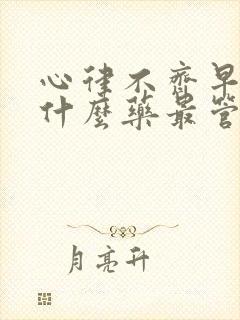 心律不齊早
什麼藥最管
月亮升